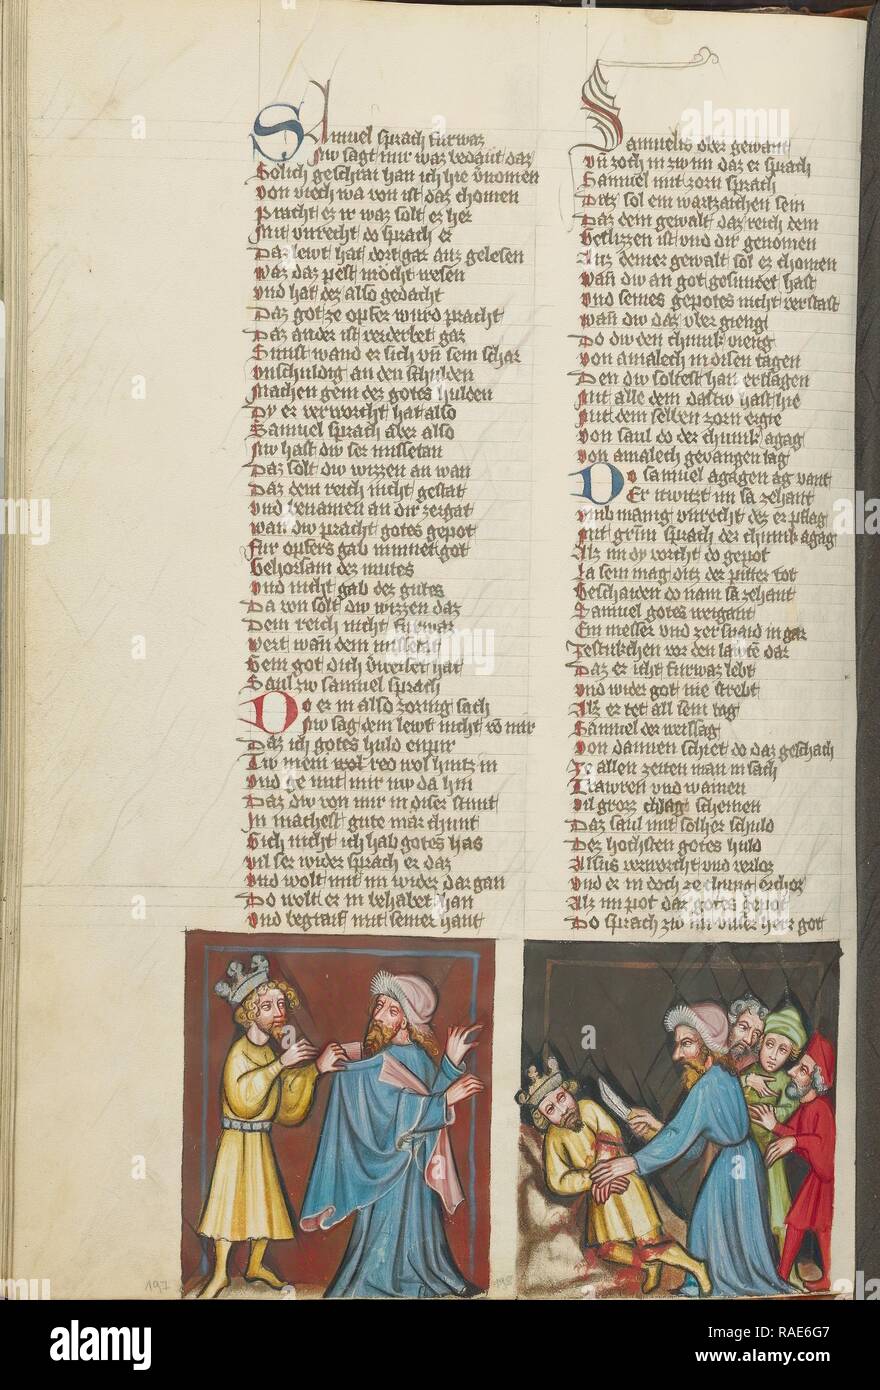 Samuel sprach furwar
Nw sagt mir waz bedäut daz
Sölich geschrai han ich hie v̄nomen
Von viech wa von ist daz chomen
Pracht er ir waz solt er her
Mit vnrecht do sprach er
Daz lewt hat dort gar auz gelesen
Waz daz pest möcht wesen
Vnd hat dez also gedacht
Daz got ze opfer wurd pracht
Daz ander ist verderbet gar
Sunst wand er sich vn̄ sein schar
Vnschuldig an den schulden
Machen gein dez gotes hulden
Dy er verworcht hat also
Samuel sprach aber also
Nw hast diw ser missetan
Daz solt diw wizzen an wan
Daz dem reich nicht gestat
Vnd benamen an dir zergat
Wan diw pracht gotes gepot
Fur opfers gab minnet got
Gehorsam dez mutes
Vnd nicht gab dez gutes
Da von solt diw wizzen daz
Dem reich nicht furwar
Wert wan̄ dein missetat
Gein got dich v̄weiset hat
Saul zw samuel sprach
Do er in also zörnig sach
Nw sag dem lewt nicht vō mir
Daz ich gotes huld enpir
Tw mein wol red wol hintz in
Vnd ge mit mir nw da hin
Daz diw von mir in diser stunt
In machest gute mär chunt
Sich nicht ich hab gotes has
Vil ser wider sprach er daz
Vnd wolt mit im wider dar gan
Do wolt er in behabet han
Vnd begraif mit seiner hant
Samuelis ober gewant
Vn̄ zoch in zw im daz er sprach
Samuel mit zorn sprach
Ditz sol ein wartzaichen sein
Daz dem gewalt daz reich dein
Geslizzen ist vnd dir genomen
Auz deiner gewalt sol er chomen
Wan̄ diw an got gesundet hast
Vnd seines gepotes nicht verstast
Wan̄ diw daz vber giengt
Do diw den chunik viengt
Von amalech in disen tagen
Den diw soltest han erslagen
Mit alle dem daz diw hast hie
Mit dem selben zorn ergie
Von saul do der chunik agag
Von amalech gevangen lag
Do samuel agagen ag vant
Er itwitzt im sa zehant
Vmb manig vnrecht dez er pflag
Mit grim sprach der chunik agag
Alz im dy vorcht do gepot
La sein mag ditz der pitter tot
Geschaiden do nam sa zehant
Samuel gotes weigant
Ein messer vnd zersnaid in gar
Ze stukchen vor den lawtē dar
Daz er icht furwaz lebt
Vnd wider got nie strebt
Alz er tet all sein tag
Samuel der weissag
Von dannen schiet do daz geschach
Ze allen zeiten man in sach
Trawren vnd wainen
Vil grozz chlag scheinen
Daz saul mit solher schuld
Dez hochsten gotes huld
Alsus verworcht vnd verlos
Vnd er in doch ze chunig erchos
Alz im pot daz gotes gepot
Do sprach zw im vnser herr got
197
198
alamy stock photo
RAE6G7
www.alamy.com